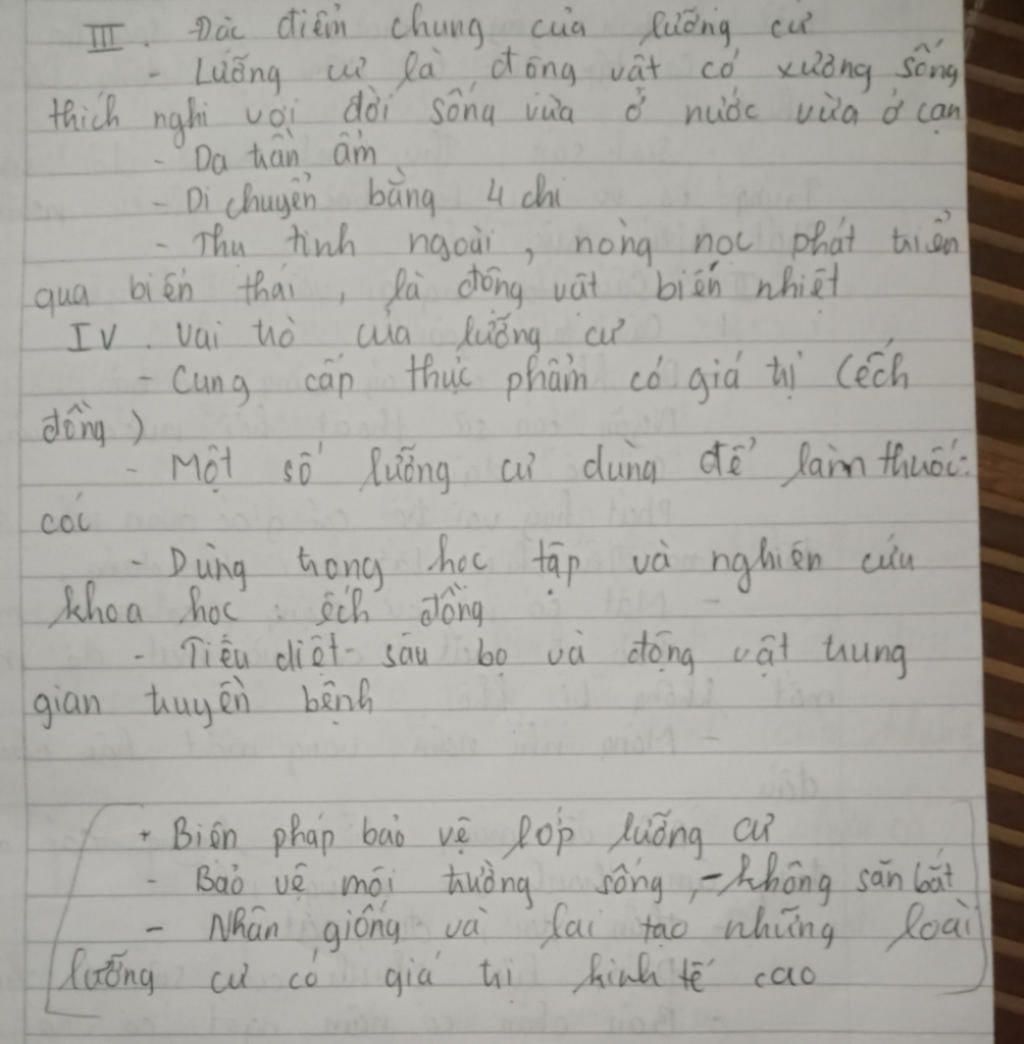 III. Đặc điểm chung của lưỡng cư
- Lưỡng cư là động vật có xương sống
thích nghi với đời sống vừa ở nước vừa ở cạn
- Da trần ẩm
- Di chuyển bằng 4 chi
- Thụ tinh ngoài, nòng nọc phát triển
qua biến thái, là động vật biến nhiệt
IV. Vai trò của lưỡng cư
- Cung cấp thực phẩm có giá trị (ếch
đồng)
- Một số lưỡng cư dùng để làm thuốc:
cóc
- Dùng trong học tập và nghiên cứu
khoa học: ếch đồng
- Tiêu diệt sâu bọ và động vật trung
gian truyền bệnh
+ Biện pháp bảo vệ lớp lưỡng cư
- Bảo vệ môi trường sống, - không săn bắt
- Nhân giống và lai tạo những loài
lưỡng cư có giá trị kinh tế cao